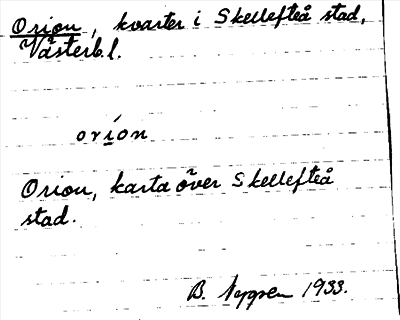 Orion, kvarter i Skellefteå stad,
Västerb.l.
oríon
Orion, karta över Skellefteå
stad.
B. Nygren 1933.